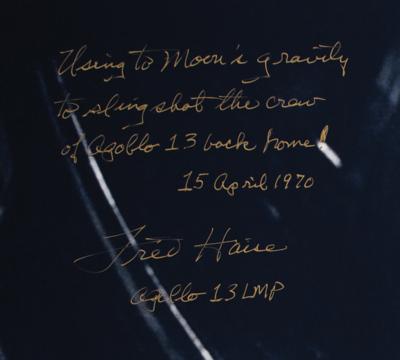 Using to Moon's gravity
to sling shot the crew
of Apollo 13 back home!
15 April 1970
Fred Haise
Apollo 13 LMP